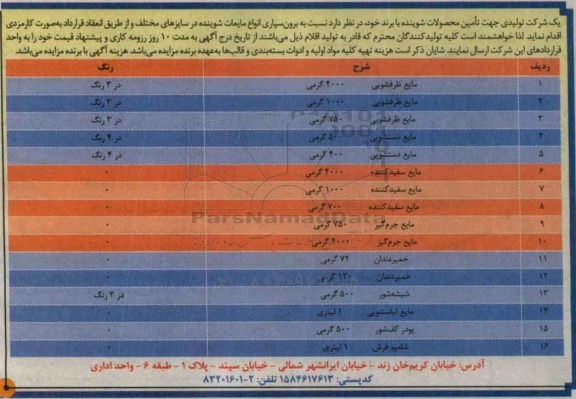 یک شرکت تولیدی جهت تأمین محصولات شوینده با برند خود در نظر دارد نسبت به برون‌سپاری انواع مایعات شوینده در سایزهای مختلف و از طریق انعقاد قرارداد به‌صورت کارمزدی
اقدام نماید. لذا خواهشمند است کلیه تولیدکنندگان محترم که قادر به تولید اقلام ذیل می‌باشند از تاریخ درج آگهی به مدت ۱۰ روز رزومه کاری و پیشنهاد قیمت خود را به واحد
قراردادهای این شرکت ارسال نمایند. شایان ذکر است هزینه تهیه کلیه مواد اولیه و ادوات بسته‌بندی و قالب‌ها به‌عهده برنده مزایده می‌باشد. هزینه آگهی با برنده مزایده می‌باشد.
ردیف شرح رنگ
۱ مایع ظرفشویی ۴۰۰۰ گرمی در ۳ رنگ
۲ مایع ظرفشویی ۱۰۰۰ گرمی در ۳ رنگ
۳ مایع ظرفشویی ۷۵۰ گرمی در ۳ رنگ
۴ مایع دستشویی گرمی در ۴ رنگ
۵ مایع دستشویی ۴۰۰ گرمی در ۴ رنگ
۶ مایع سفیدکننده ۴۰۰۰ گرمی ۰
۷ مایع سفیدکننده ۱۰۰۰ گرمی ۰
۸ مایع سفیدکننده ۷۰۰ گرمی ۰
۹ مایع جرم‌گیر ۷۵۰ گرمی ۰
۱۰ مایع جرم‌گیر ۴۰۰۰ گرمی ۰
۱۱ خمیردندان ۷۲ گرمی ۰
۱۲ خمیردندان ۱۳۰ گرمی ۰
۱۳ شیشه‌شور ۵۰۰ گرمی در ۳ رنگ
۱۴ مایع لباسشویی ۱ لیتری ۰
۱۵ پودر کف‌شور ۵۰۰ گرمی ۰
۱۶ شامپو فرش ۱ لیتری ۰
ParsNamadData
آدرس: خیابان کریم‌خان زند - خیابان ایرانشهر شمالی - خیابان سپند - پلاک ۱ - طبقه ۶ - واحد اداری
کدپستی: ۱۵۸۴۶۱۷۶۱۳ تلفن: ۲-۸۳۲۰۱۶۰۱